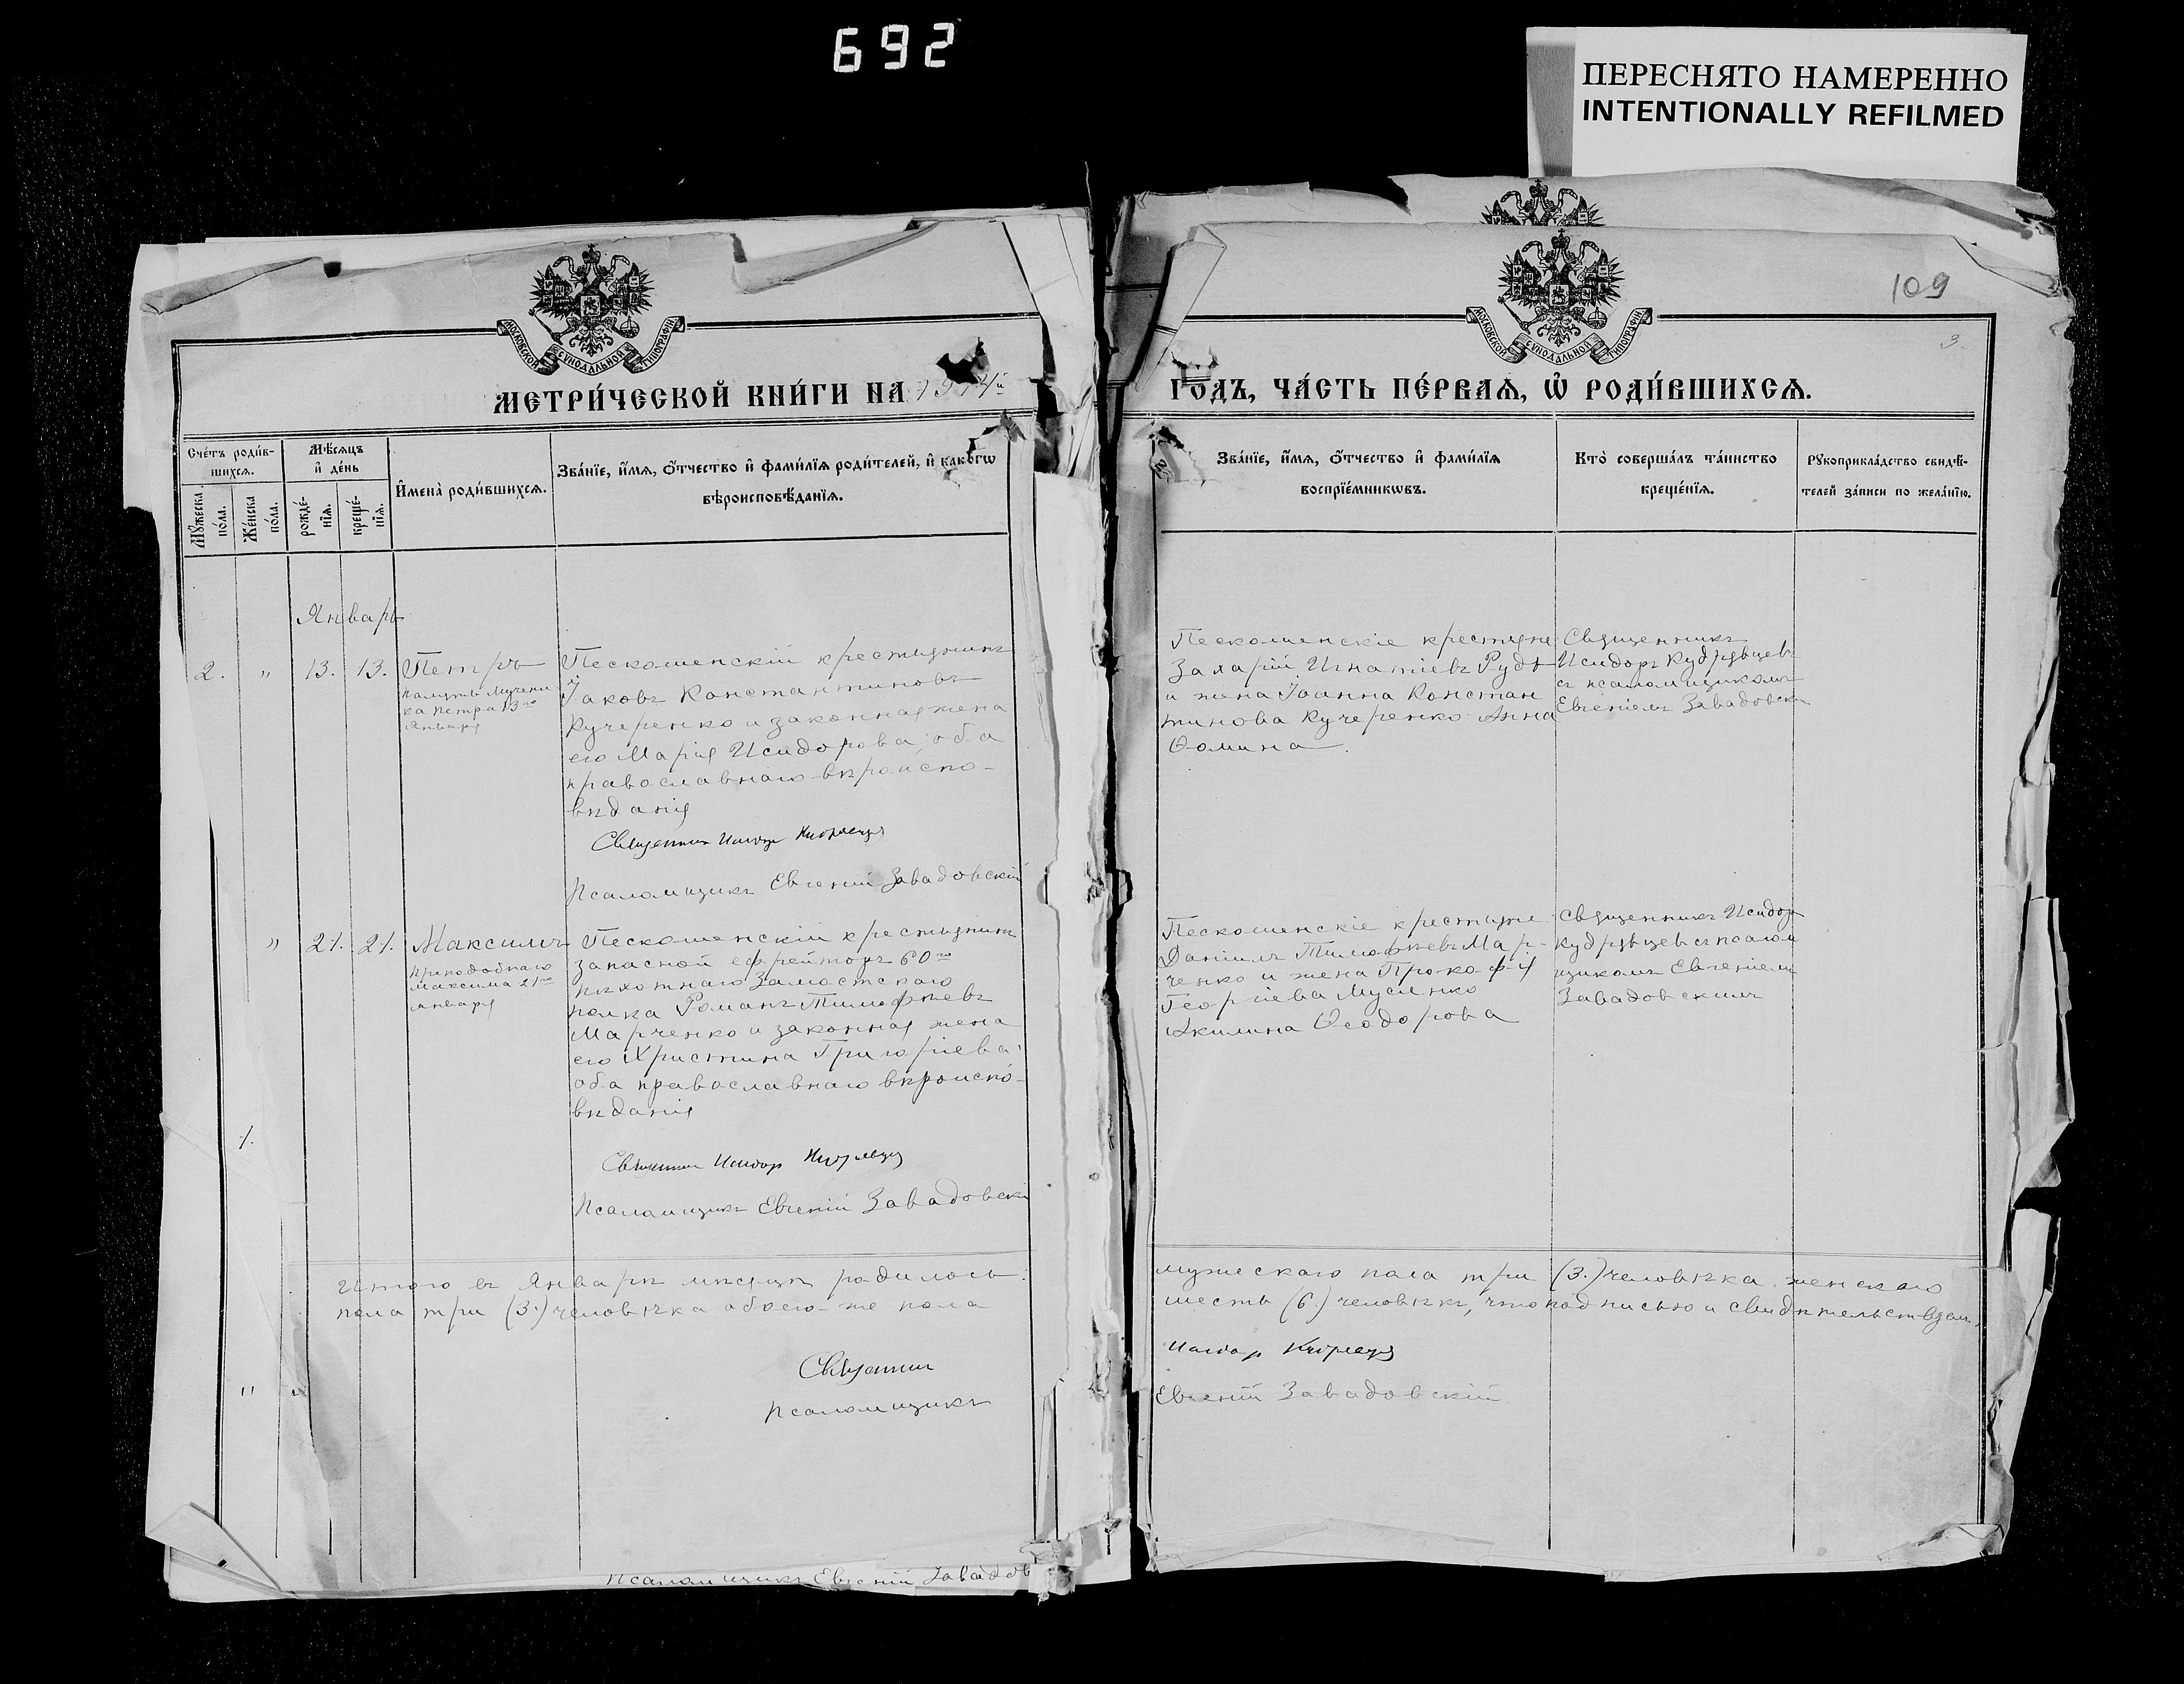 692
ПЕРЕСНЯТО НАМЕРЕННО
INTENTIONALLY REFILMED
109
3.
МОСКОВСКОЙ СУНОДАЛЬНОЙ ТИПОГРАФІИ
МОСКОВСКОЙ СУНОДАЛЬНОЙ ТИПОГРАФІИ
МЕТРИ́ЧЕСКОЙ КНИ́ГИ НА 1914й
ГОДЪ, ЧА́СТЬ ПЕ́РВАЯ, Ѡ҆ РОДИ́ВШИХСЯ.
Сче́тъ роди́в-
шихся.
Мꙋ́жеска по́ла.
Же́нска по́ла.
Мѣ́сяцъ
и҆ де́нь
рожде́-
нїя.
креще́-
нїя.
И҆мена̀ роди́вшихся.
Зва́нїе, и҆́мя, ѻ҆́тчество и҆ фами́лїя роди́телей, и҆ како́гѡ
вѣроисповѣ́данїя.
Зва́нїе, и҆́мя, ѻ҆́тчество и҆ фами́лїя
воспрїе́мникѡвъ.
Кто̀ соверша́лъ та́инство
креще́нїя.
Рꙋкоприкла́дство свидѣ́-
телей за́писи по жела́нїю.
Январь
2. " 13. 13. Петръ
память мучени
ка Петра 13го
января
Пескошенскій крестьянинъ
Іаковъ Константиновъ
Кучеренко и законная жена
его Марія Исидорова, оба
православнаго вѣроиспо-
вѣданія
Священникъ Исидоръ Кудрявцевъ
Псаломщикъ Евгеній Завадовскій
Пескошенскіе крестьяне
Захарій Игнатіевъ Рудь
и жена Іоанна Констан
тинова Кучеренко Анна
Ѳомина.
Священникъ
Исидоръ Кудрявцевъ
съ псаломщикомъ
Евгеніемъ Завадовски
" 21. 21. Максимъ
преподобнаго
Максима 21го
января
Пескошенскій крестьянинъ
запасной ефрейторъ 60го
пѣхотнаго Замостскаго
полка Романъ Тимофѣевъ
Марченко и законная жена
его Христина Григоріева,
оба православнаго вѣроиспо-
вѣданія
1.
Священникъ Исидоръ Кудрявцевъ
Псаломщикъ Евгеній Завадовски
Пескошенскіе крестьяне
Даніилъ Тимофѣевъ Мар-
ченко и жена Прокофія
Георгіева Мусіенко
Акилина Ѳеодорова
Священникъ Исидор
Кудрявцевъ съ псалом
щикомъ Евгеніемъ
Завадовскимъ
Итого въ Январѣ мѣсяцѣ родилось:
мужескаго пола три (3.) человѣка, женскаго
пола три (3.) человѣка обоего-же пола
шесть (6.) человѣкъ, что подписью и свидѣтельствуемъ,
Священникъ
Исидоръ Кудрявцевъ
" "
Псаломщикъ
Евгеній Завадовскій
Псаломщикъ Евгеній Завадов